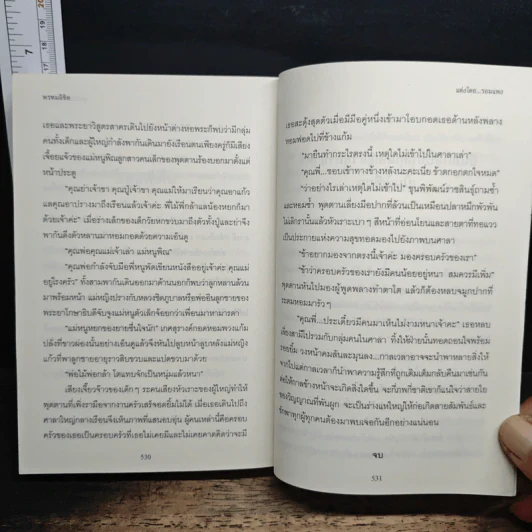 พรหมลิขิต
เธอและพระยาวิสูตรสาครเดินไปยังหน้าต่างหอพระก็พบว่ามีกลุ่ม
คนทั้งเด็กและผู้ใหญ่กำลังพากันเดินมายังเรือนตนเพียงครู่ก็มีเสียง
เจื้อยแจ้วของแม่หนูพิณลูกสาวคนเล็กของพุดตานร้องบอกมาตั้งแต่
หน้าประตู
"คุณย่าเจ้าขา คุณปู่เจ้าขา คุณแม่ให้มาเรียนว่าคุณอาแก้ว
และคุณอาปรางมาถึงเรือนแล้วเจ้าค่ะ พี่ไม้พี่กล้าแลน้องหยกก็มา
ด้วยเจ้าค่ะ" เมื่อร่างเล็กของเด็กวัยหกขวบมาถึงตัวทั้งปู่และย่าจึง
พากันดึงตัวหลานมาหอมกอดด้วยความเอ็นดู
"คุณพ่อคุณแม่เจ้าเล่า แม่หนูพิณ"
"คุณพ่อกำลังจับมือพี่หนูพัดเขียนหนังสืออยู่เจ้าค่ะ คุณแม่
อยู่โรงครัว" ทั้งสามพากันเดินออกมาด้านนอกก็พบว่าลูกหลานล้วน
มาพร้อมหน้า แม่หญิงปรางกับหลวงชิตภูบาลหรือพ่อยิ่งลูกชายของ
พระยาโกษาธิบดีจับจูงแม่หนูตัวเล็กจ้อยกว่าเพื่อนมาหามารดา
"แม่หนูหยกของยายชื่นใจนัก" เกศสุรางค์กอดหอมพวงแก้ม
ปลั่งที่ขาวผ่องนั้นอย่างเอ็นดูแล้วจึงหันไปลูบหน้าลูบหลังแม่หญิง
แก้วที่พาลูกชายอายุราวสิบขวบและแปดขวบมาด้วย
"พ่อไม้พ่อกล้า โตแทบจักเป็นหนุ่มแล้วหนา"
เสียงเจี๊ยวจ๊าวของเด็กๆ ระคนเสียงหัวเราะของผู้ใหญ่ทำให้
พุดตานที่เพิ่งรามือจากงานครัวเสร็จอดยิ้มไม่ได้ เมื่อเธอเดินไปถึง
ศาลาใหญ่กลางเรือนจึงเห็นภาพที่แสนอบอุ่น ผู้คนเหล่านี้คือครอบ
ครัวของเธอเป็นครอบครัวที่เธอไม่เคยมีและไม่เคยคาดคิดว่าจะมี
530
แต่งโดย...รอมแพง
เธอสะดุ้งสุดตัวเมื่อมีมือคู่หนึ่งเข้ามาโอบกอดเธอด้านหลังพลาง
หอมฟอดไปที่ข้างแก้ม
"มายืนทำกระไรตรงนี้ เหตุใดไม่เข้าไปในศาลาเล่า"
"คุณพี่...ชอบเข้าทางข้างหลังนะคะเนี่ย ข้าตกอกตกใจหมด"
"ว่าอย่างไรเล่าเหตุใดไม่เข้าไป" ขุนพิพัฒน์ราชสินธุ์ถามซ้ำ
และหอมซ้ำ พุดตานเลี่ยงมือปากที่ล้วนเป็นเหมือนปลาหมึกพัวพัน
ไม่เลิกรานั้นแล้วหัวเราะเบาๆ สีหน้าที่อ่อนโยนและสายตาที่ทอแวว
เป็นประกายแห่งความสุขทอดมองไปยังภาพบนศาลา
"ข้าอยากมองจากตรงนี้เจ้าค่ะ มองครอบครัวของเรา"
"ข้าว่าครอบครัวของเรายังมีคนน้อยอยู่หนา สมควรมีเพิ่ม"
พุดตานหันไปมองผู้พูดพลางทำตาโต แล้วก็ต้องหลบจมูกปากที่
ระดมหอมมารัวๆ
"คุณพี่...ประเดี๋ยวมีคนมาเห็นไม่งามหนาเจ้าค่ะ" เธอหลบ
เลี่ยงสามีไปรวมกับกลุ่มคนในศาลา ทิ้งให้ฝ่ายนั้นทอดถอนใจพร้อม
รอยยิ้ม วงหน้าคมสันละมุนลง...กาลเวลาอาจจะนำพาหลายสิ่งให้
จากไปแต่กาลเวลาก็นำพาความรู้สึกที่ถูกเติมเต็มกลับคืนมาเช่นกัน
ต่อให้กาลข้างหน้าจะเกิดสิ่งใดขึ้น จะกี่ภพกี่ชาติเขาก็แน่ใจว่าสายใย
ของวิญญาณที่พันผูก จะเป็นร่างแหใหญ่ให้ก่อเกิดสายสัมพันธ์และ
ชักพาทุกผู้ทุกคนต้องมาพบเจอกันอีกอย่างแน่นอน
จบ
531